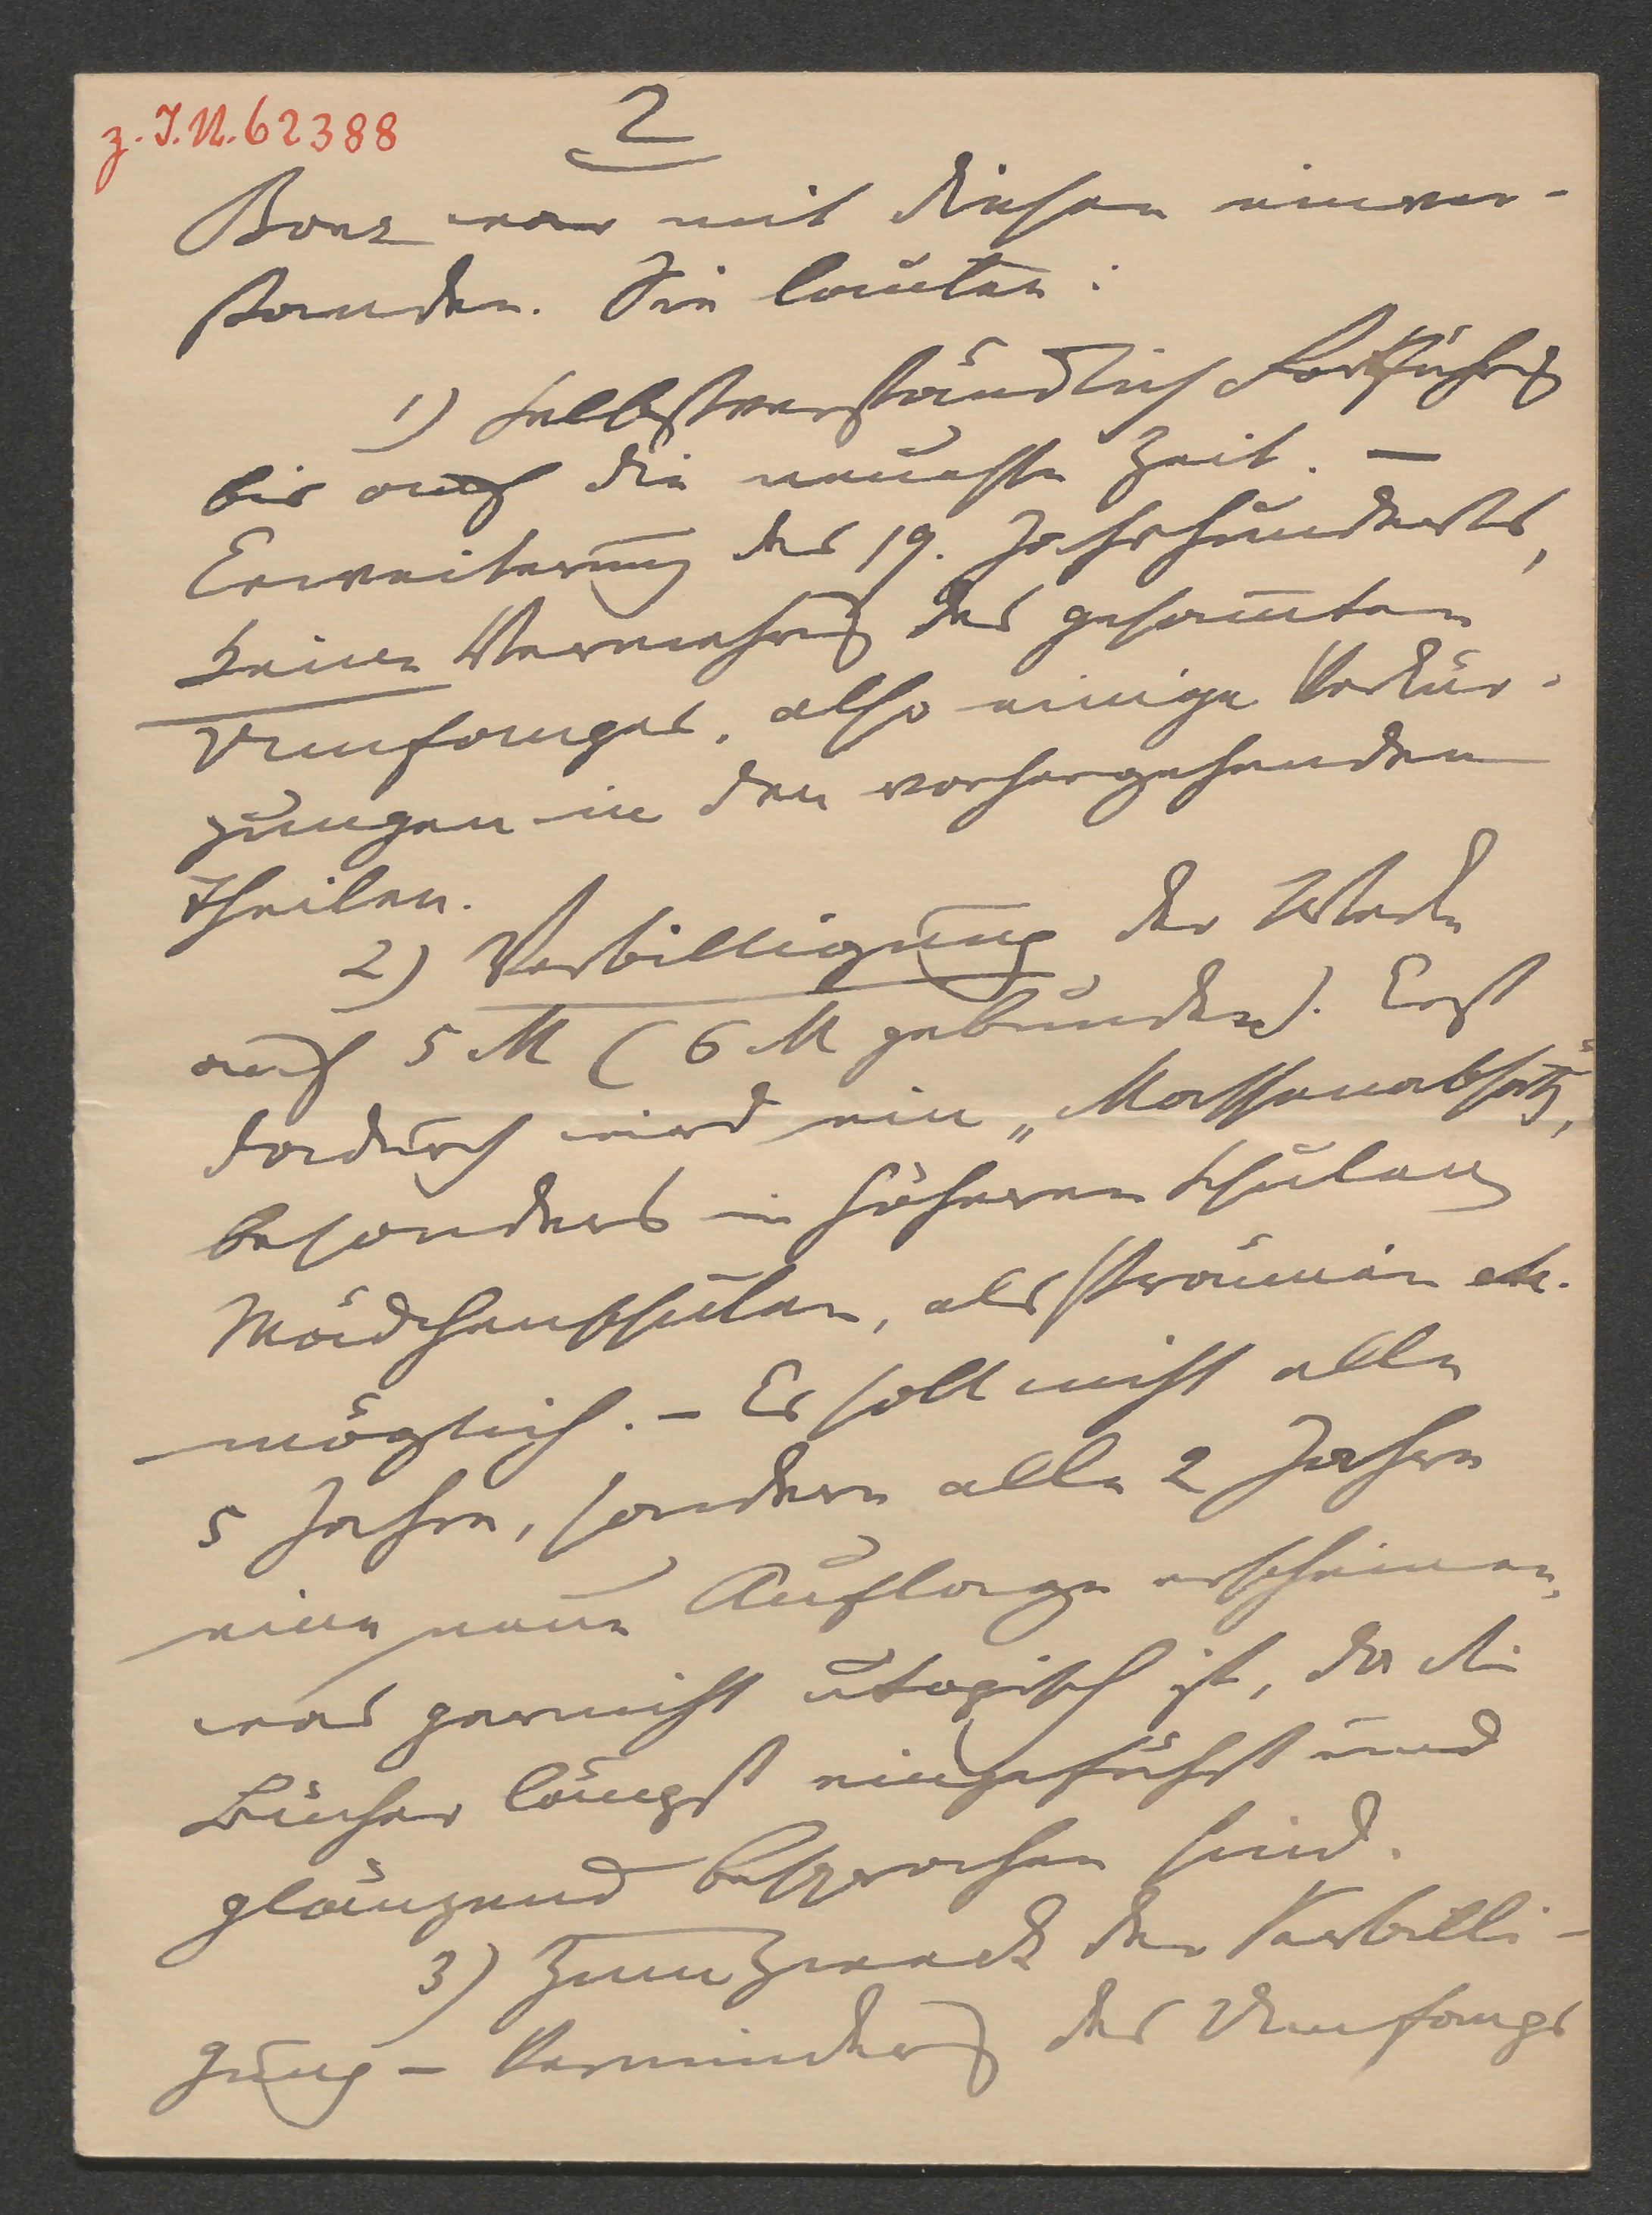 z. I.N. 62388
2
Bonz war mit diesen einver-
standen. Sie lauten:
1) Selbstverständlich Fortführg
bis auf die neueste Zeit. –
Erweiterung des 19. Jahrhunderts,
keine Vermehrg des gesamten
Umfanges, also einige Verkür-
zungen in den vorhergehenden
Theilen.
2) Verbilligung der Werke
auf 5 M (6 M gebunden). Erst
dadurch wird ein „Massenabsatz",
besonders in höheren Schulen
Mädchenschulen, als Prämien etc.
möglich. – Es soll nicht alle
5 Jahre, sondern alle 2 Jahre
eine neue Auflage erscheinen,
was garnicht utopisch ist, da die
Bücher längst eingeführt und
glänzend besprochen sind.
3) Zum Zweck der Verbilli-
gung – Verminderg des Umfangs